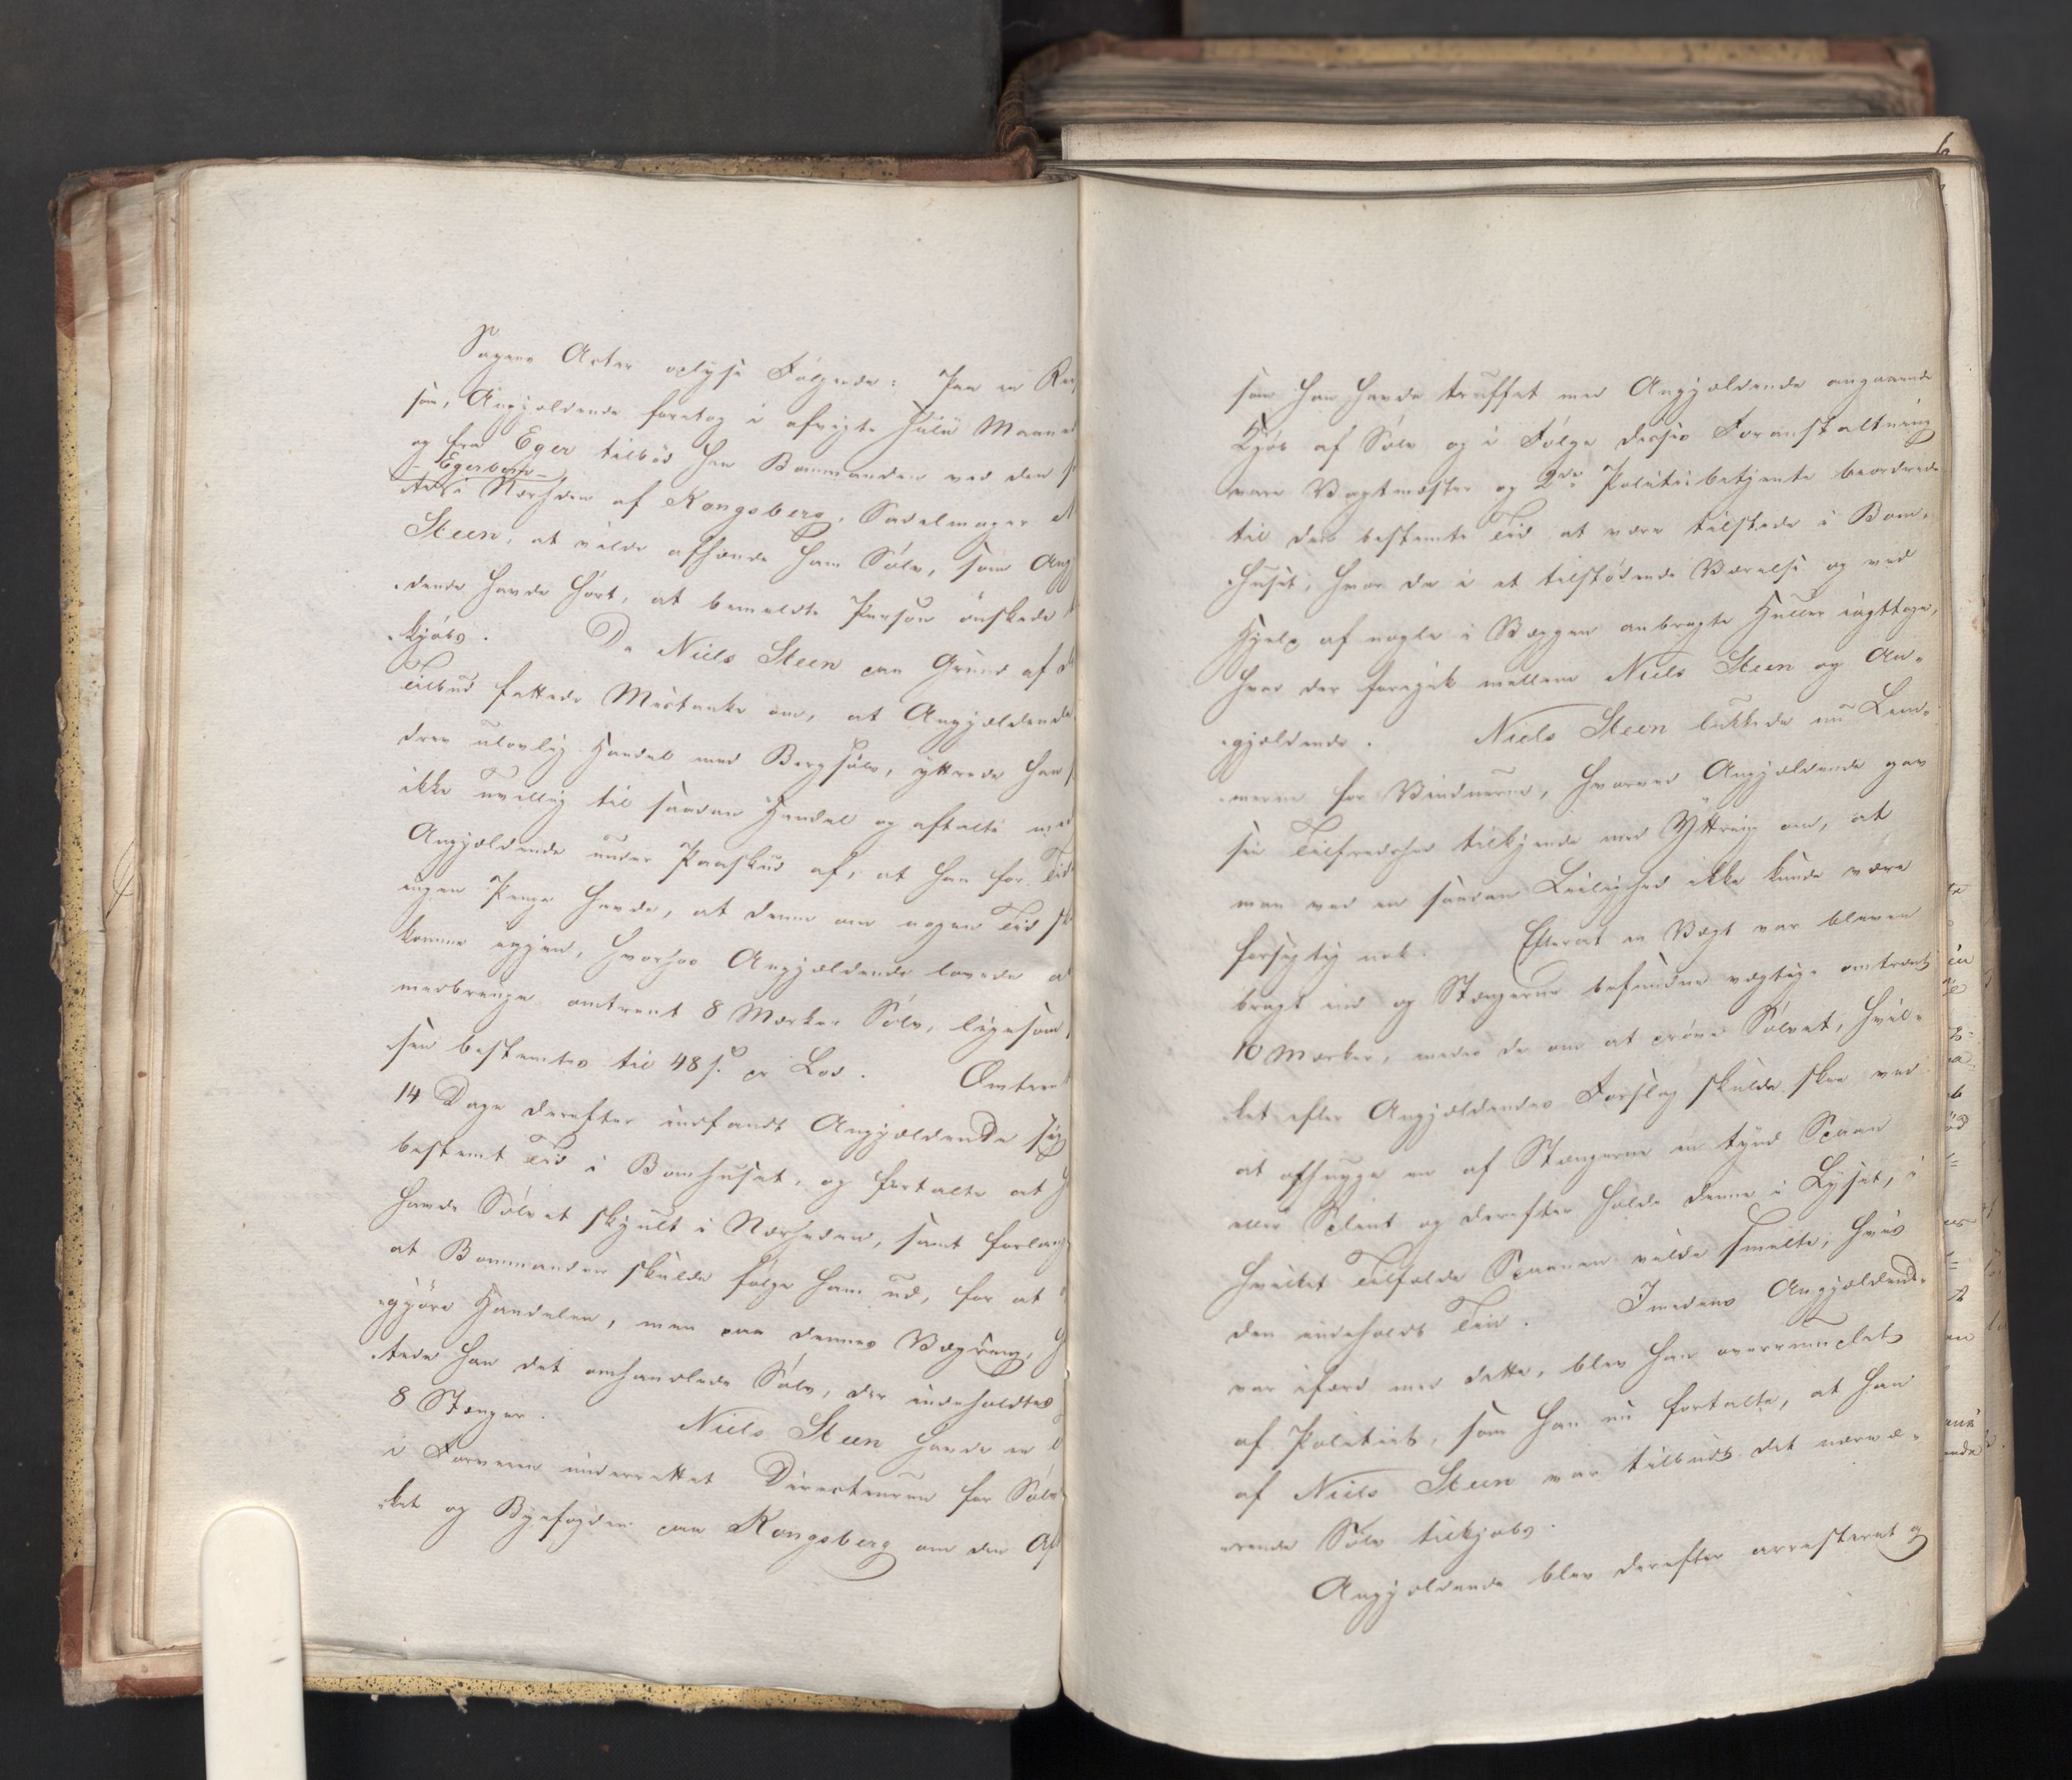 Sagens Acter oplyse Følgende: Paa en Rei
se, Angjældende foretog i afvigte Julii Maaned
og fra Eger tilbød han Bommanden ved den s
- Egerbom -
i Nærheden af Kongsberg, Sadelmager
Steen, at ville afhænde ham Sølv, som Ang
dende havde hørt, at bemeldte Person ønskede
kjøbs. Da Niels Steen paa Grund af
Tilbud fattede Mistanke om, at Angjældende
drev ulovlig Handel med Bergsølv, yttrede han
ikke uvillig til saadan Handel og aftalte med
Angjældende under Paaskud af, at han for Tid
ingen Penge havde, at denne om nogen Tid sk
komme igjen, hvorhos Angjældende lovede a
medbringe omtrent 8 Marker Sølv, ligesom
sen bestemtes til 48 s. pr Lod. Omtrent
14 Dage derefter indfandt Angjældende sig
bestemt Tid i Bomhuset, og fortalte at h
havde Sølvet skjult i Nærheden, samt forlang
at Bommanden skulde følge ham ud, for at
gjøre Handelen, men paa dennes Vægring, h
tede han det omhandlede Sølv, der indeholdtes
8 Stænger. Niels Steen havde en
i Forveien underrettet Directeuren for Sølv
ket og Byefogden paa Kongsberg om den Af
som han havde truffet med Angjældende angaaende
Kjøb af Sølv og i Følge disses Foranstaltning
vare Vagtmester og 2de Politiebetjente beordrede
til den bestemte Tid at være tilstede i Bom-
huset, hvor de i et tilstødende Værelse og ved
Hjelp af nogle i Væggen anbragte Huller iagttoge,
hvad der foregik mellem Niels Steen og An-
gjældende. Niels Steen lukkede nu Lem-
merne for Vinduerne, hvorved Angjældende gav
sin Tilfredshed tilkjende med Yttring om, at
man ved en saadan Leilighed ikke kunde være
forsigtig nok. Efterat en Vægt var bleven
bragt ind og Stængerne befundne vægtige omtrent
10 Marker, meds de om at prøve Sølvet, hvil-
ket efter Angjældendes Forslag skulde skee ved
at afhugge en af Stængerne en tynd Spaan
eller Splint og derefter holde denne i Lyset, i
hvilket Tilfælde Spaanen vilde smelte, hvis
den indeholdt Tin. Imedens Angjældende
var ifærd med dette, blev han overrumplet
af Politiet, som han nu fortalte, at han
af Niels Steen var tilbudt det nærvæ-
rende Sølv tilkjøbs.
Angjældende blev derefter arresteret og